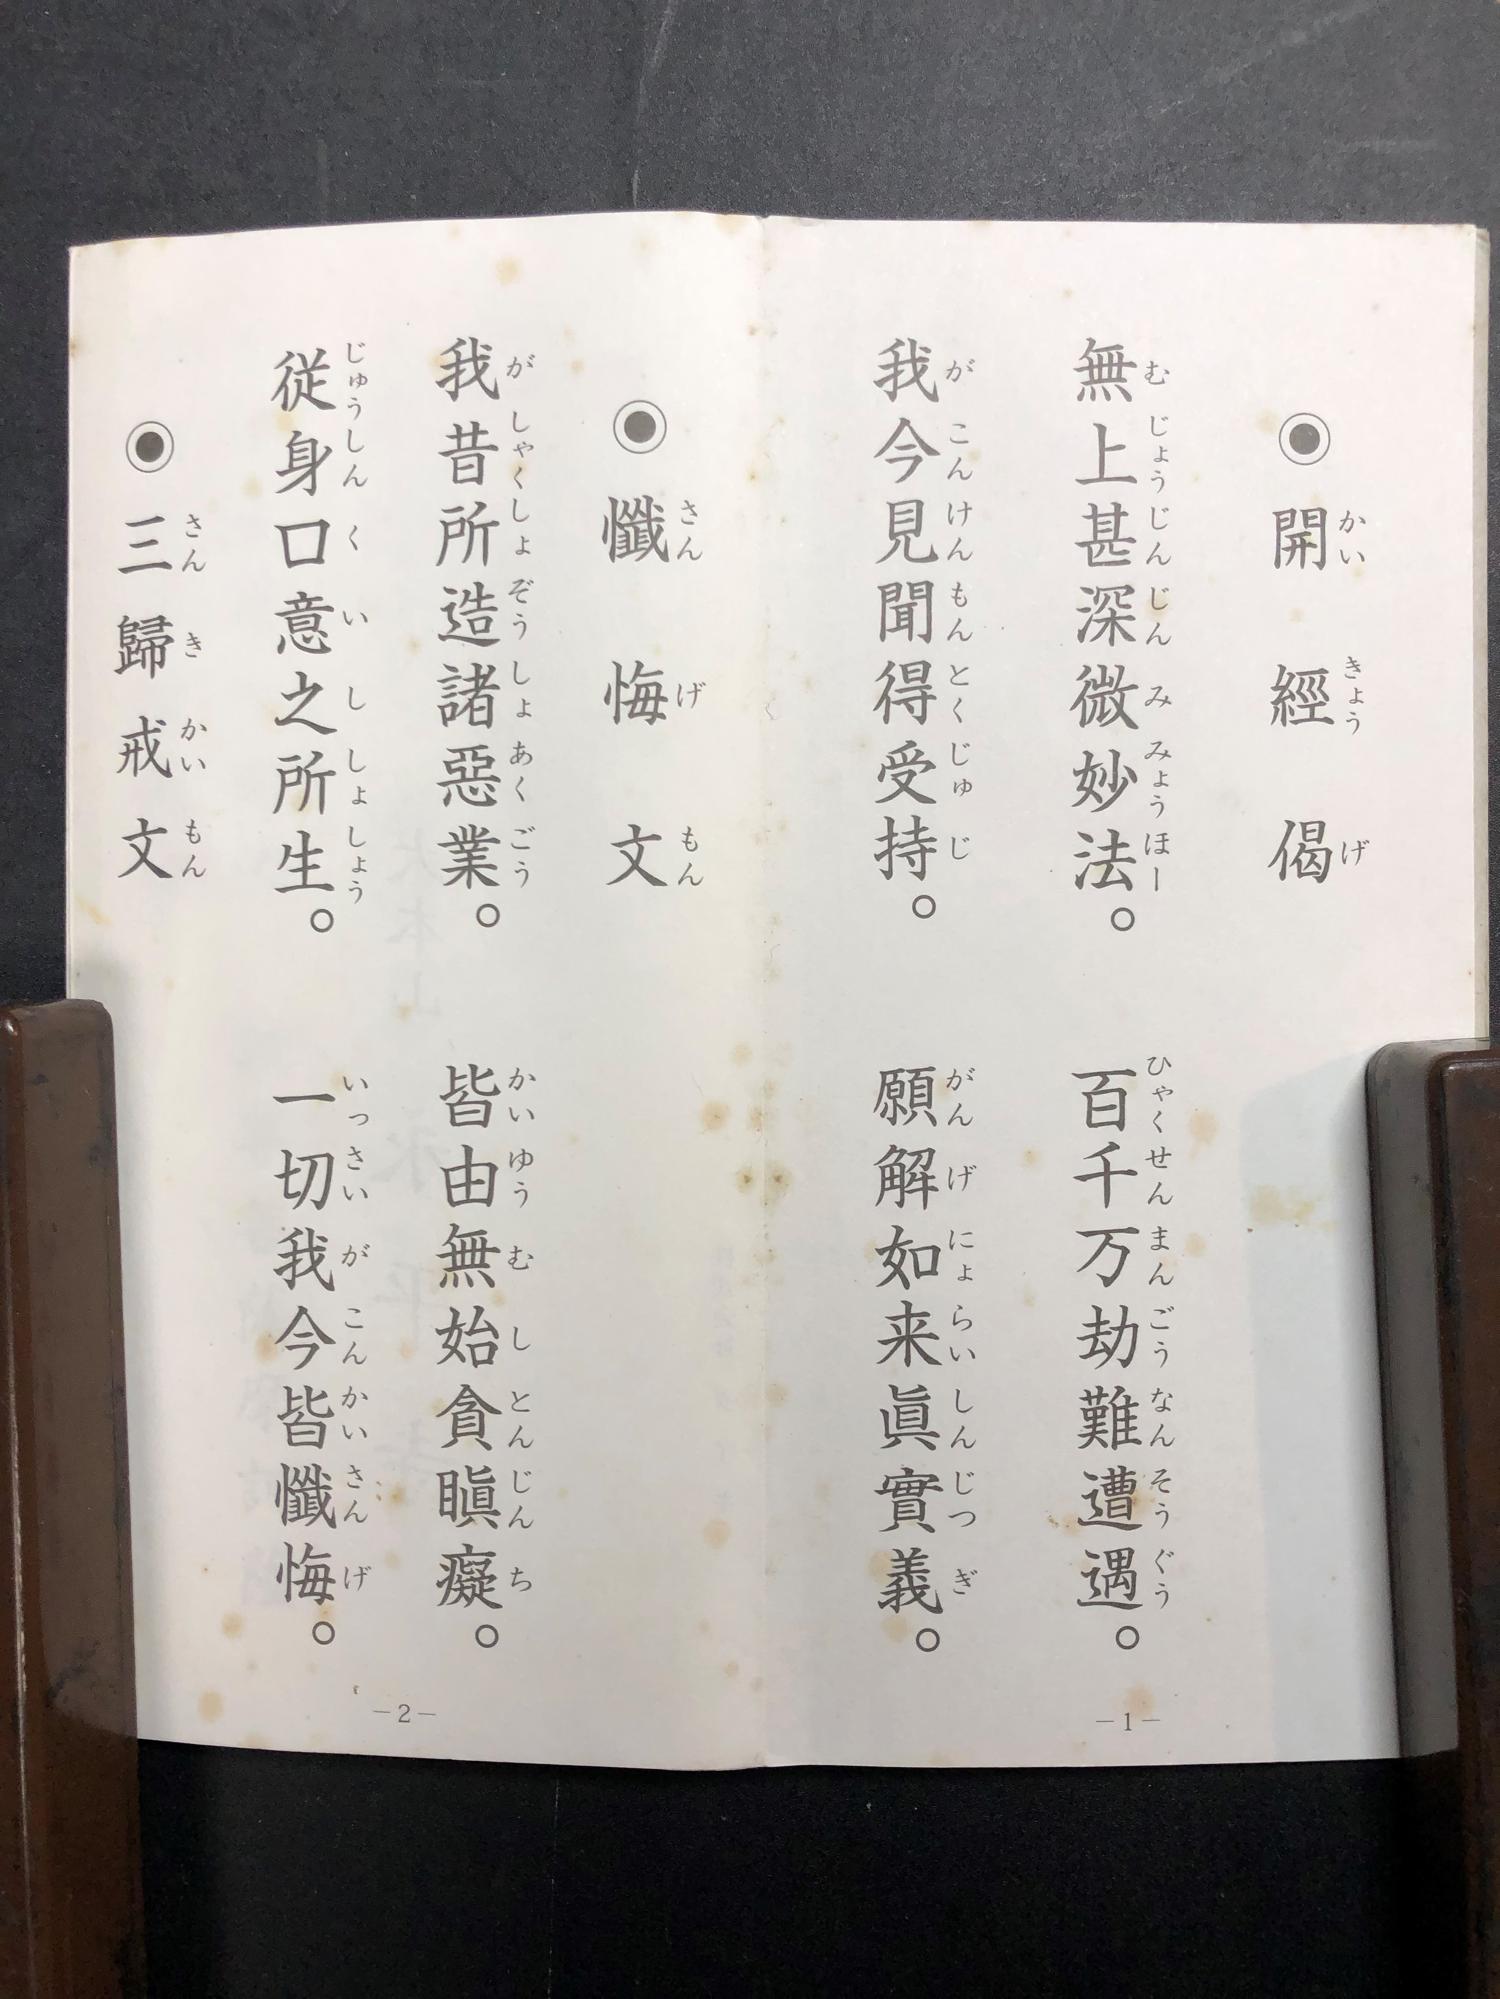 ◉ 開經偈
かいきょうげ
無上甚深微妙法。 百千万劫難遭遇。
むじょうじんじんみみょうほー ひゃくせんまんごうなんそうぐう
我今見聞得受持。 願解如来眞實義。
がこんけんもんとくじゅじ がんげにょらいしんじつぎ
－1－
◉ 懺悔文
さんげもん
我昔所造諸惡業。 皆由無始貪瞋癡。
がしゃくしょぞうしょあくごう かいゆうむしとんじんち
従身口意之所生。 一切我今皆懺悔。
じゅうしんくいししょしょう いっさいがこんかいさんげ
◉ 三歸戒文
さんきかいもん
－2－